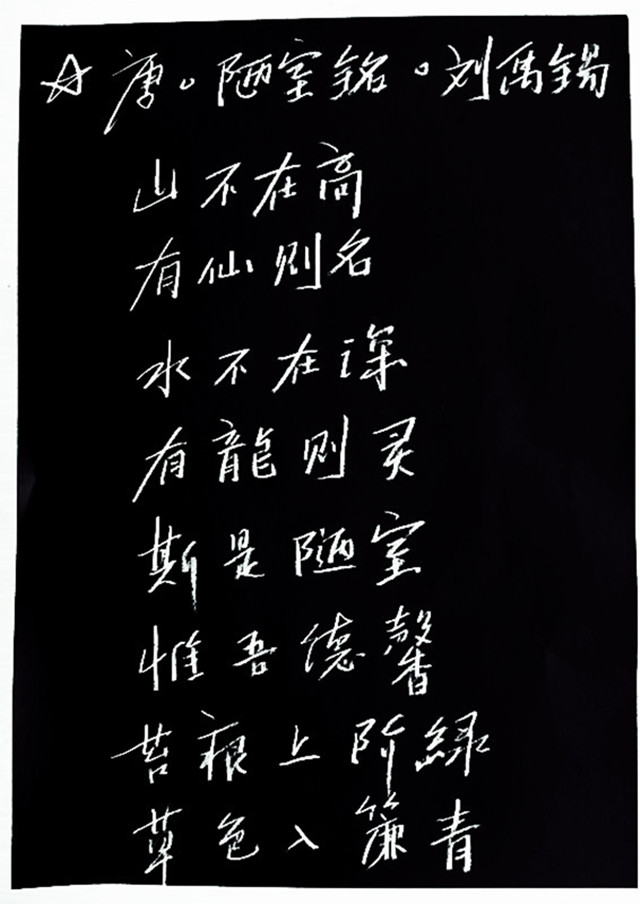 ☆唐。陋室銘。刘禹錫
山不在高
有仙则名
水不在深
有龍则灵
斯是陋室
惟吾德馨
苔痕上阶綠
草色入簾青